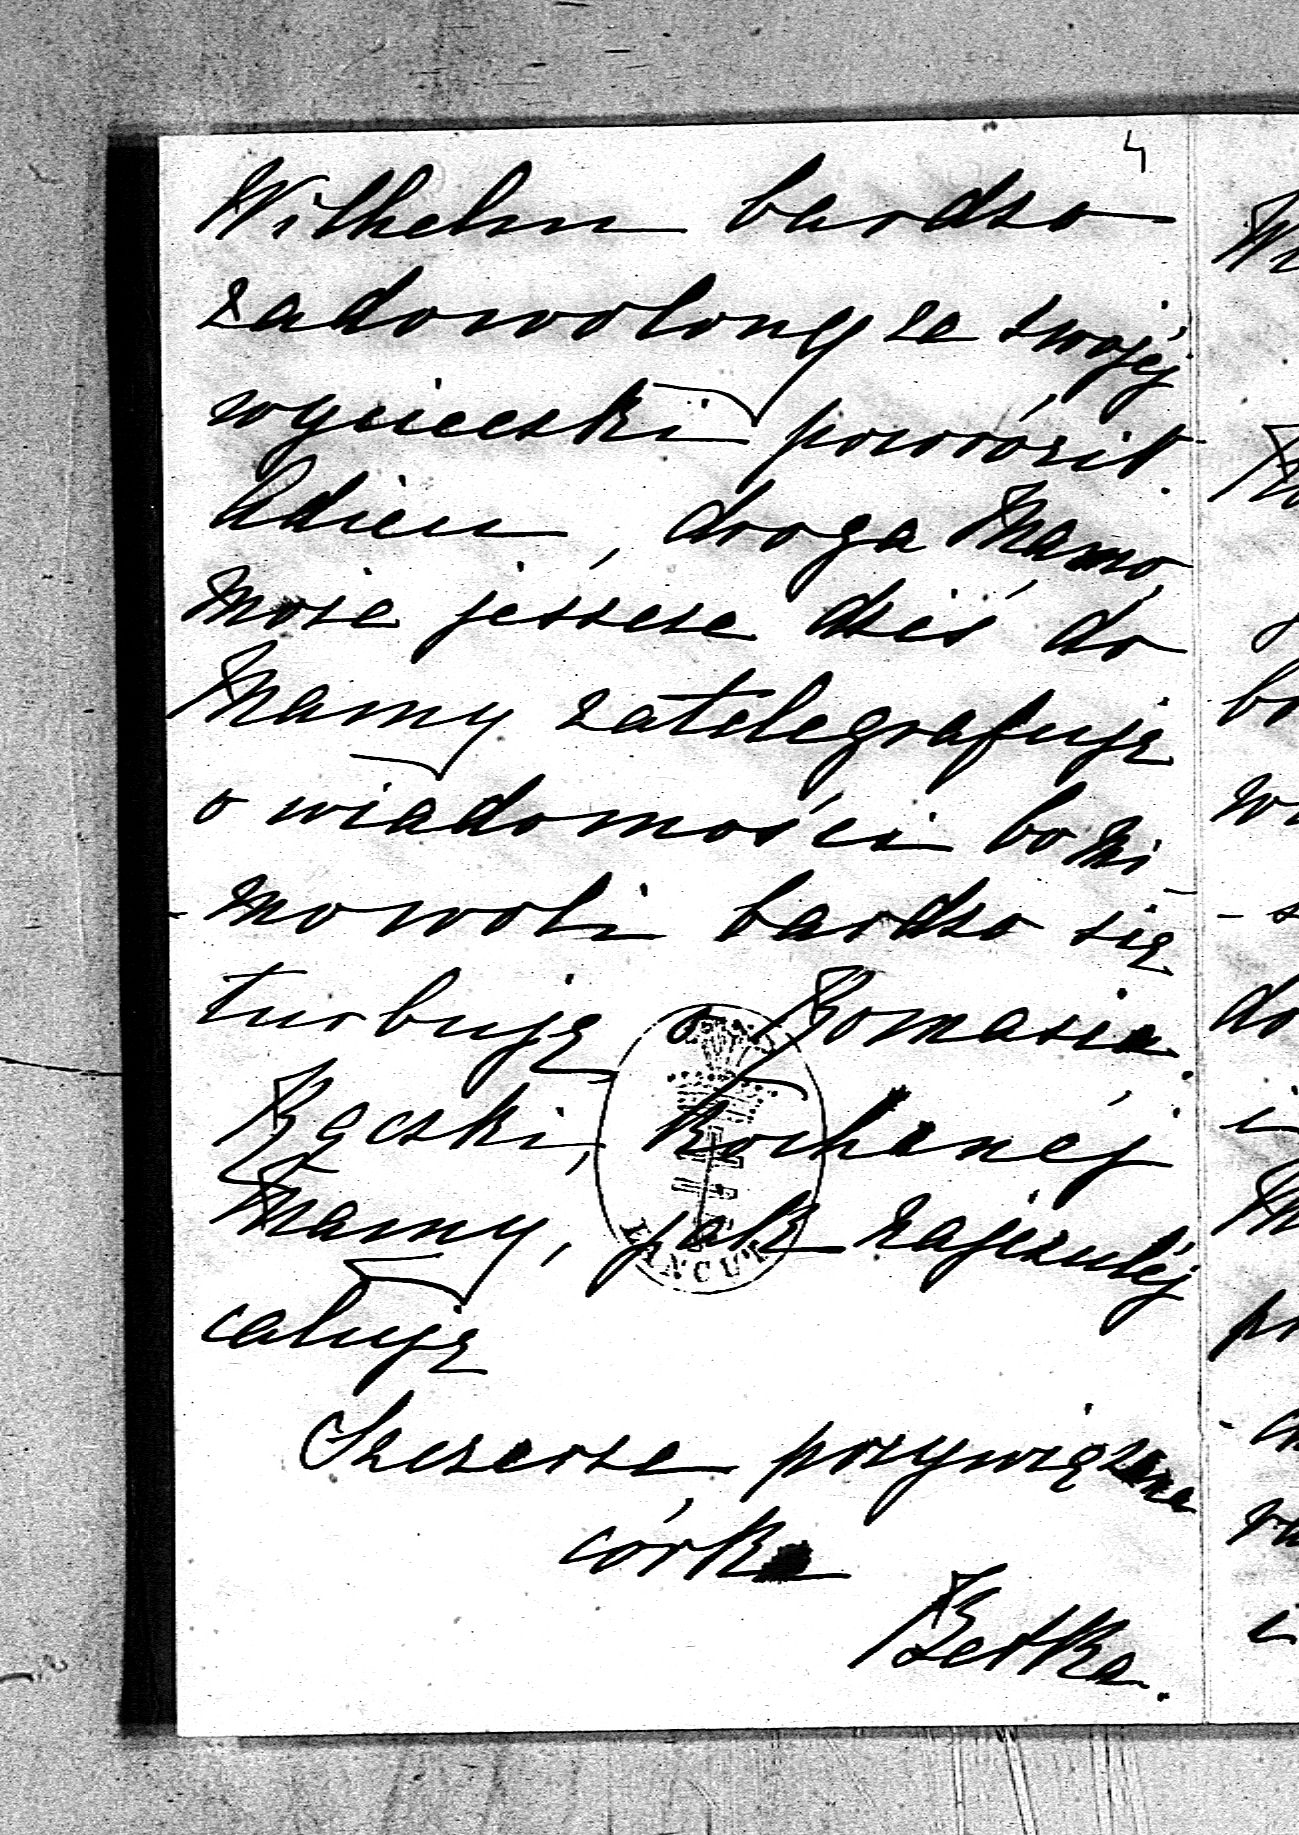 4
Wilhelm bardzo
zadowolony ze swojéj
wycieczki powrócił.
Adieu, droga Mamo,
może jeszcze dziś do
Mamy zatelegrafuję
o wiadomości bo mi-
-mowoli bardzo się
turbuję o Romasia.
Rączki, kochanéj
Mamy, jak najczuléj
całuję
Szczerze przywiązana
córka
Betka.
ŁAŃCUT